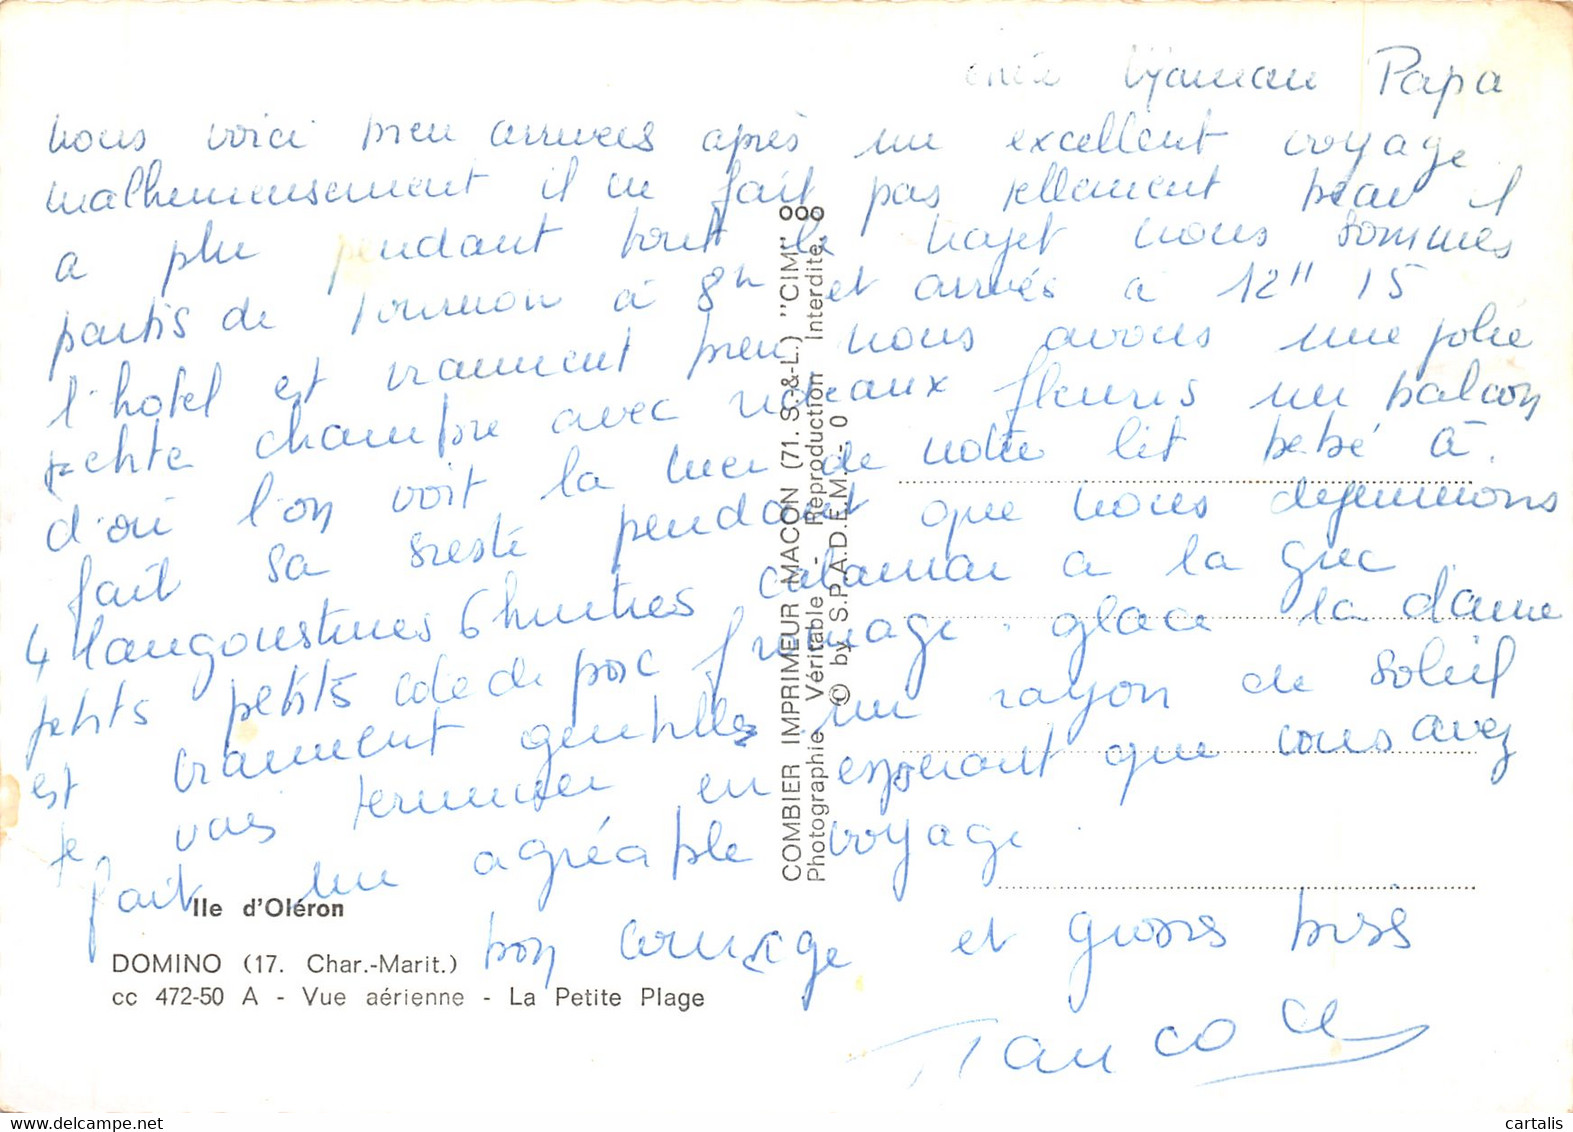 Maman Papa
nous voici bien arrivés après un excellent voyage
malheureusement il ne fait pas tellement beau il
a plu pendant tout le trajet nous sommes
partis de Tournon à 8h et arrivés à 12H 15
l'hotel est vraiment bien nous avons une jolie
petite chambre avec rideaux fleuris un balcon
d'où l'on voit la mer de notre lit bébé à
fait sa sieste pendant que nous dejeunions
4 langoustines 6 huitres calamar a la grec
petits petits cote de porc fromage. glace la dame
est vraiment gentille un rayon de soleil
je vais terminer en esperant que vous avez
fait un agréable voyage.
bon courage et gross biss
Ile d'Oléron
DOMINO (17. Char.-Marit.)
cc 472-50 A - Vue aérienne - La Petite Plage
COMBIER IMPRIMEUR MACON (71. S.-&-L.) "CIM"
Photographie Véritable - Reproduction Interdite.
© by S.P.A.D.E.M. - 0
cartalis